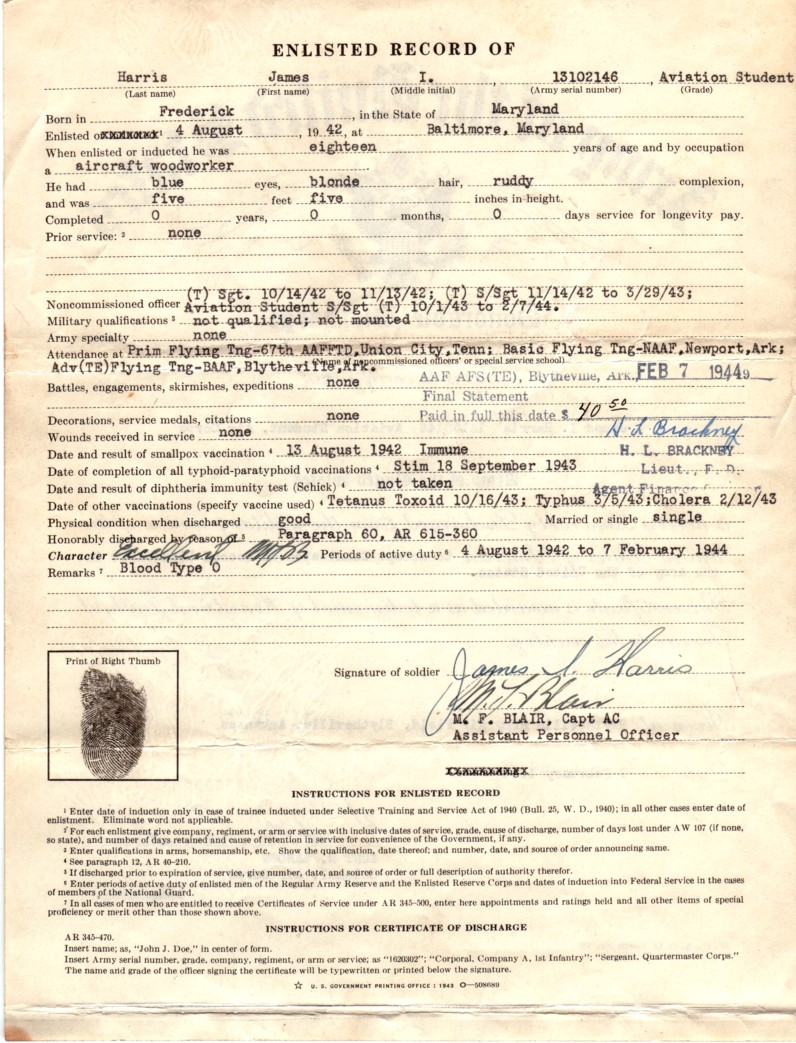 ENLISTED RECORD OF
Harris James I. 13102146, Aviation Student
(Last name) (First name) (Middle initial) (Army serial number) (Grade)
Born in Frederick, in the State of Maryland
Enlisted oxxxxxxxx¹ 4 August, 19 42, at Baltimore, Maryland
When enlisted or inducted he was eighteen years of age and by occupation
a aircraft woodworker
He had blue eyes, blonde hair, ruddy complexion,
and was five feet five inches in height.
Completed 0 years, 0 months, 0 days service for longevity pay.
Prior service: ² none
(T) Sgt. 10/14/42 to 11/13/42; (T) S/Sgt 11/14/42 to 3/29/43;
Noncommissioned officer Aviation Student S/Sgt (T) 10/1/43 to 2/7/44.
Military qualifications ³ not qualified; not mounted
Army specialty none
Attendance at Prim Flying Tng-67th AAFFTD,Union City,Tenn; Basic Flying Tng-NAAF,Newport,Ark;
(Name of noncommissioned officers' or special service school)
Adv(TE)Flying Tng-BAAF,Blytheville,Ark.
AAF AFS(TE), Blytheville, Ark. FEB 7 1944
Battles, engagements, skirmishes, expeditions none
Final Statement
Decorations, service medals, citations none Paid in full this date $ 40 50
Wounds received in service none H. L. Brackney
Date and result of smallpox vaccination ⁴ 13 August 1942 Immune H. L. BRACKNEY
Date of completion of all typhoid-paratyphoid vaccinations ⁴ Stim 18 September 1943 Lieut., F. D.
Date and result of diphtheria immunity test (Schick) ⁴ not taken Agent Finance
Date of other vaccinations (specify vaccine used) ⁴ Tetanus Toxoid 10/16/43; Typhus 3/5/43;Cholera 2/12/43
Physical condition when discharged good Married or single single
Honorably discharged by reason of ⁵ Paragraph 60, AR 615-360
Character Excellent Periods of active duty ⁶ 4 August 1942 to 7 February 1944
Remarks ⁷ Blood Type O
Print of Right Thumb
Signature of soldier James I. Harris
M. F. Blair
M. F. BLAIR, Capt AC
Assistant Personnel Officer
INSTRUCTIONS FOR ENLISTED RECORD
¹ Enter date of induction only in case of trainee inducted under Selective Training and Service Act of 1940 (Bull. 25, W. D., 1940); in all other cases enter date of
enlistment. Eliminate word not applicable.
² For each enlistment give company, regiment, or arm or service with inclusive dates of service, grade, cause of discharge, number of days lost under AW 107 (if none,
so state), and number of days retained and cause of retention in service for convenience of the Government, if any.
³ Enter qualifications in arms, horsemanship, etc. Show the qualification, date thereof; and number, date, and source of order announcing same.
⁴ See paragraph 12, AR 40-210.
⁵ If discharged prior to expiration of service, give number, date, and source of order or full description of authority therefor.
⁶ Enter periods of active duty of enlisted men of the Regular Army Reserve and the Enlisted Reserve Corps and dates of induction into Federal Service in the cases
of members of the National Guard.
⁷ In all cases of men who are entitled to receive Certificates of Service under AR 345-500, enter here appointments and ratings held and all other items of special
proficiency or merit other than those shown above.
INSTRUCTIONS FOR CERTIFICATE OF DISCHARGE
AR 345-470.
Insert name; as, "John J. Doe," in center of form.
Insert Army serial number, grade, company, regiment, or arm or service; as "1620302"; "Corporal, Company A, 1st Infantry"; "Sergeant, Quartermaster Corps."
The name and grade of the officer signing the certificate will be typewritten or printed below the signature.
☆ U. S. GOVERNMENT PRINTING OFFICE : 1943 O—508689